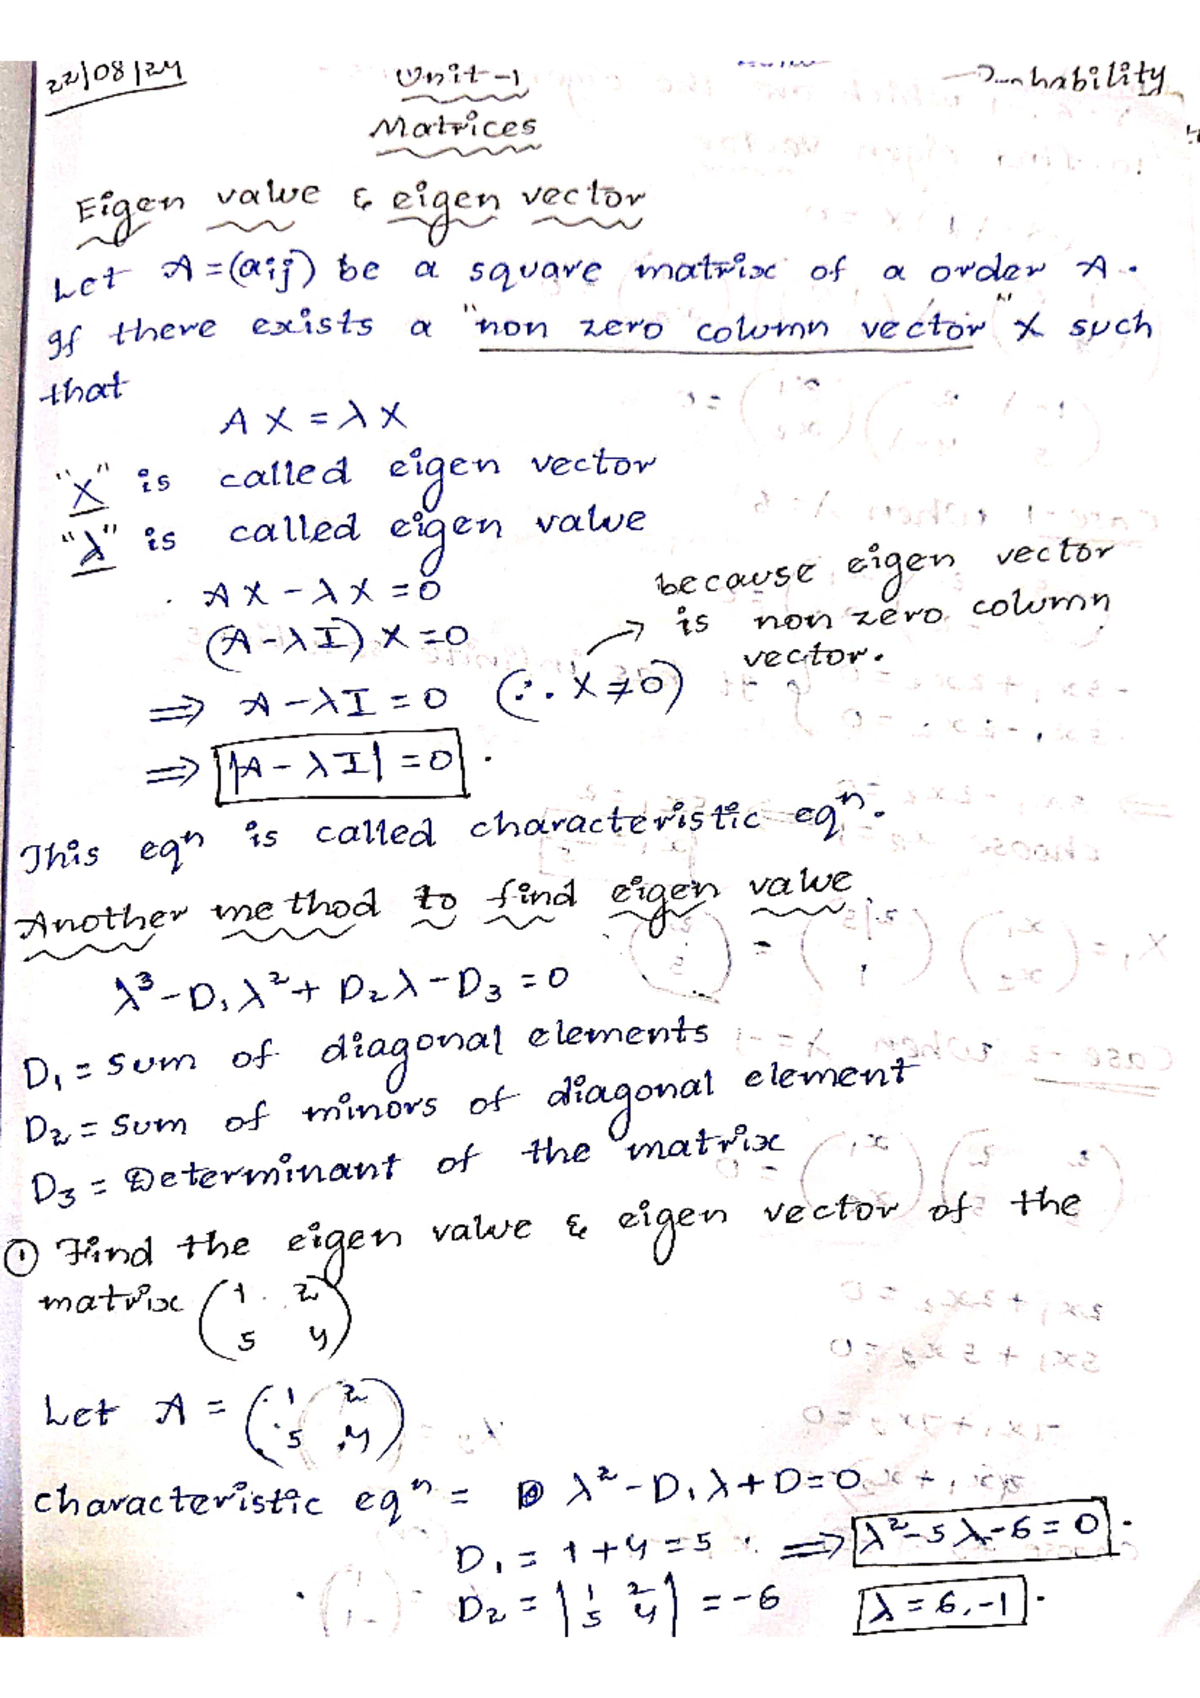 22/08/24
Unit-1
Matrices
Eigen value & eigen vector
Let A = (aij) be a square matrix of a order A.
If there exists a "non zero column vector" X such
that
AX = λX
"X" is called eigen vector
"λ" is called eigen value
AX - λX = 0
(A - λI) X = 0
because eigen vector
is non zero column
vector.
⇒ A - λI = 0 (∵ X ≠ 0)
⇒ |A - λI| = 0.
This eqn is called characteristic eqn.
Another method to find eigen value
λ³ - D₁λ² + D₂λ - D₃ = 0
D₁ = sum of diagonal elements
D₂ = sum of minors of diagonal element
D₃ = Determinant of the matrix
① Find the eigen value & eigen vector of the
matrix (1 2
5 4)
Let A = (1 2
5 4)
characteristic eqn = λ² - D₁λ + D = 0
D₁ = 1 + 4 = 5 ⇒ λ² - 5λ - 6 = 0.
D₂ = |1 2
5 4| = -6 λ = 6, -1.